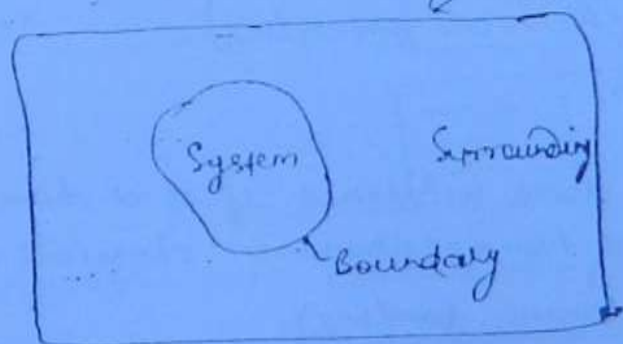 System
Surrounding
Boundary